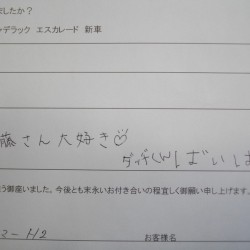 ましたか？
ャデラック エスカレード 新車
藤さん大好き
ダッチくんばいば
う御座いました。今後とも末永いお付き合いの程宜しく御願い申し上げます。
マーH2
お客様名